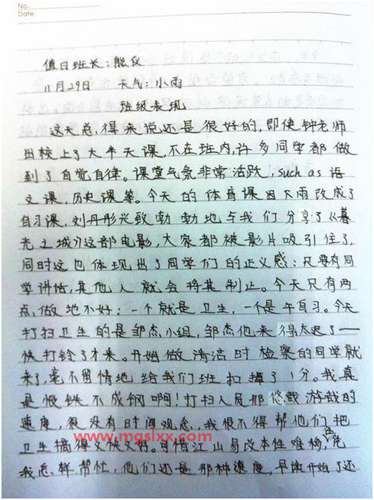 No.
Date
值日班长：熊仪
11月29日 天气：小雨
班级表现
这天总得来说还是很好的，即使钟老师
因校上了大半天课，不在班内，许多同学都做
到了自觉自律。课堂气氛非常活跃，such as 语
文课，历史课等。今天的体育课因下雨改成了
自习课，刘丹彤兴致勃勃地与我们分享了《暮
光之城》这部电影，大家都被影片吸引住了，
同时这也体现出了同学们的正义感：只要有同
学讲话，其他人就会将其制止。今天只有两
点，做地不好：一个就是卫生，一个是午自习。今天
打扫卫生的是邹杰小组，邹杰他来得太迟了——
快打铃了才来。开始做清洁时检察的同学就
来了，毫不留情地给我们班扣掉了1分。我真
是恨铁不成钢啊！打扫人员那悠散游戏的
速度，很没有时间观念。我恨不得帮他们把
卫生搞得又快又好。可惜江山易改本性难移，
我怎样帮忙，他们还是那种速度，早读开始了还
www.mgslxx.com